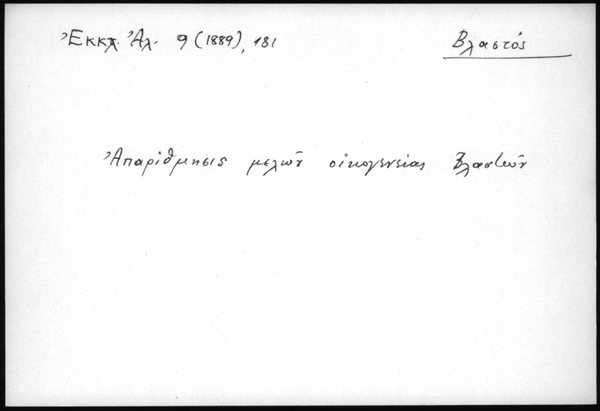 Ἐκκλ. Ἀλ. 9 (1889), 181 Βλαστός
Ἀπαρίθμησις μελῶν οἰκογενείας Βλαστῶν